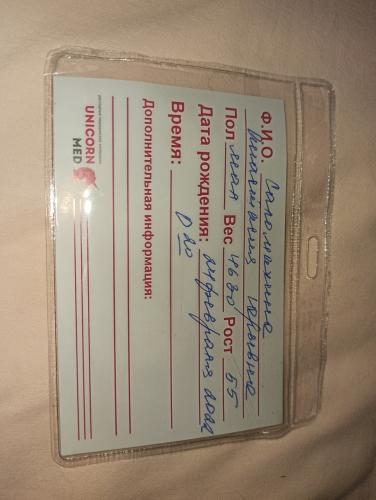 Ф.И.О. Саломахина
Анастасия Юрьевна
Пол жен Вес 4630 Рост 55
Дата рождения: 24 февраля 2022
Время: 0 20
Дополнительная информация:
UNICORN
MED